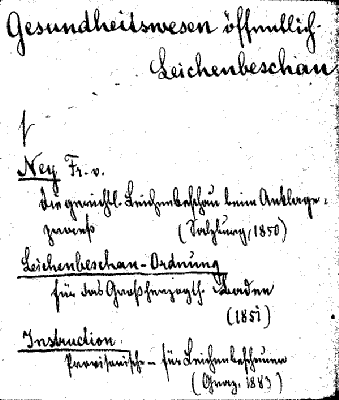 Gesundheitswesen öffentlich-
Leichenbeschau
Ney Fr. v.
die gerichtl. Leichenbeschau beim Anklage-
prozeß (Salzburg, 1850)
Leichenbeschau-Ordnung
für das Großherzogth. Baden
(1851)
Instruction
Provisorische – für Leichenbeschauer
(Graz, 1883)